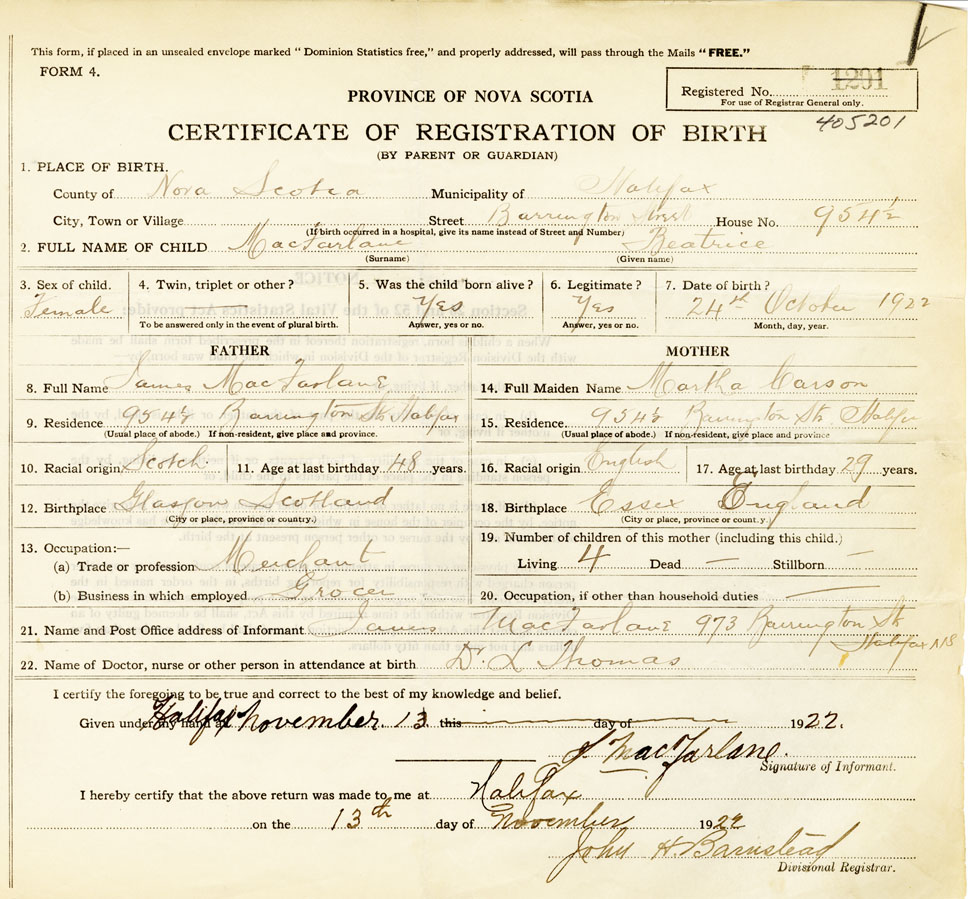 This form, if placed in an unsealed envelope marked "Dominion Statistics free," and properly addressed, will pass through the Mails "FREE."
FORM 4.
Registered No. 1201
For use of Registrar General only.
405201
PROVINCE OF NOVA SCOTIA
CERTIFICATE OF REGISTRATION OF BIRTH
(BY PARENT OR GUARDIAN)
1. PLACE OF BIRTH.
County of Nova Scotia Municipality of Halifax
City, Town or Village Street Barrington Street House No. 954½
(If birth occurred in a hospital, give its name instead of Street and Number)
2. FULL NAME OF CHILD MacFarlane Beatrice
(Surname) (Given name)
3. Sex of child. 4. Twin, triplet or other? 5. Was the child born alive? 6. Legitimate? 7. Date of birth?
Female — Yes Yes 24th October 1922
To be answered only in the event of plural birth. Answer, yes or no. Answer, yes or no. Month, day, year.
FATHER MOTHER
8. Full Name James MacFarlane 14. Full Maiden Name Martha Carson
9. Residence 954½ Barrington St. Halifax 15. Residence 954½ Barrington St. Halifax
(Usual place of abode.) If non-resident, give place and province. (Usual place of abode.) If non-resident, give place and province
10. Racial origin Scotch 11. Age at last birthday 48 years. 16. Racial origin English 17. Age at last birthday 29 years.
12. Birthplace Glasgow Scotland 18. Birthplace Essex England
(City or place, province or country.) (City or place, province or country.)
13. Occupation:— 19. Number of children of this mother (including this child.)
(a) Trade or profession Merchant Living 4 Dead — Stillborn —
(b) Business in which employed Grocer 20. Occupation, if other than household duties —
21. Name and Post Office address of Informant James MacFarlane 973 Barrington St
Halifax NS
22. Name of Doctor, nurse or other person in attendance at birth Dr L Thomas
I certify the foregoing to be true and correct to the best of my knowledge and belief.
Given under my hand at Halifax November 13 this day of 1922.
J. MacFarlane.
Signature of Informant.
I hereby certify that the above return was made to me at Halifax
on the 13th day of November 1922
John H. Barnstead
Divisional Registrar.